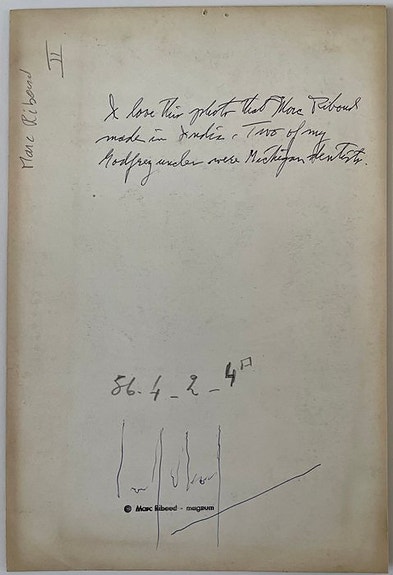 Marc Riboud
II
I love this photo that Marc Riboud
made in India. Two of my
Godfrey uncles were Michigan dentists.
56. 4 _ 2 _ 4
© Marc Riboud - magnum